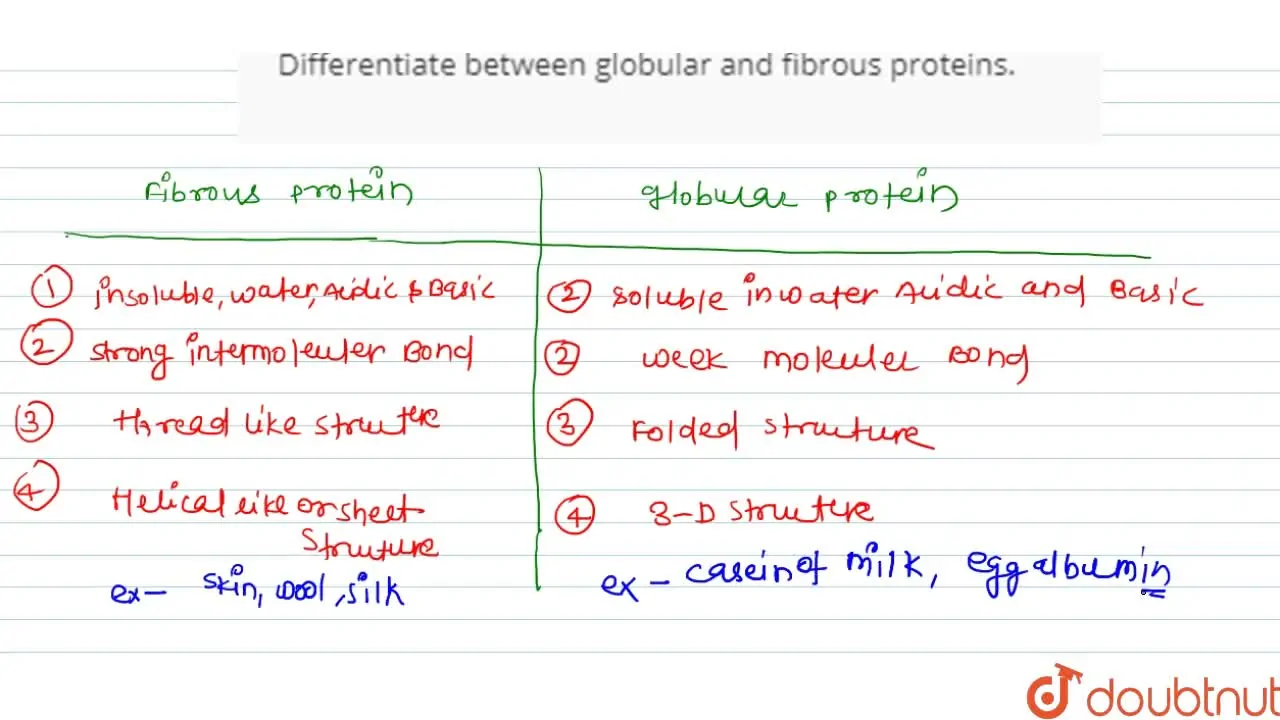 Differentiate between globular and fibrous proteins.
Fibrous protein
globular protein
① insoluble, water, Acidic & Basic
② soluble in water Acidic and Basic
② strong intermolculer Bond
② week molculer Bond
③ thread like structere
③ Folded structure
④ Helical like or sheet
structure
④ 3-D structere
ex- skin, wool, silk
ex - casein of milk, egg albumin
doubtnut